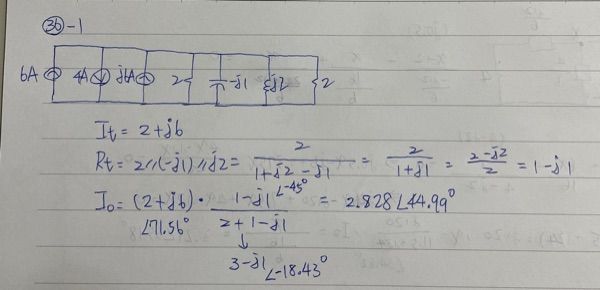 36-1
6A 4A j6A 2 -j1 j2 2
It = 2+j6
Rt = 2//(-j1)//j2 = 2/(1+j2-j1) = 2/(1+j1) = (2-j2)/2 = 1-j1
Io = (2+j6)・(1-j1)/(2+1-j1) = 2.828∠44.99°
∠71.56° ∠-45°
↓
3-j1 ∠-18.43°